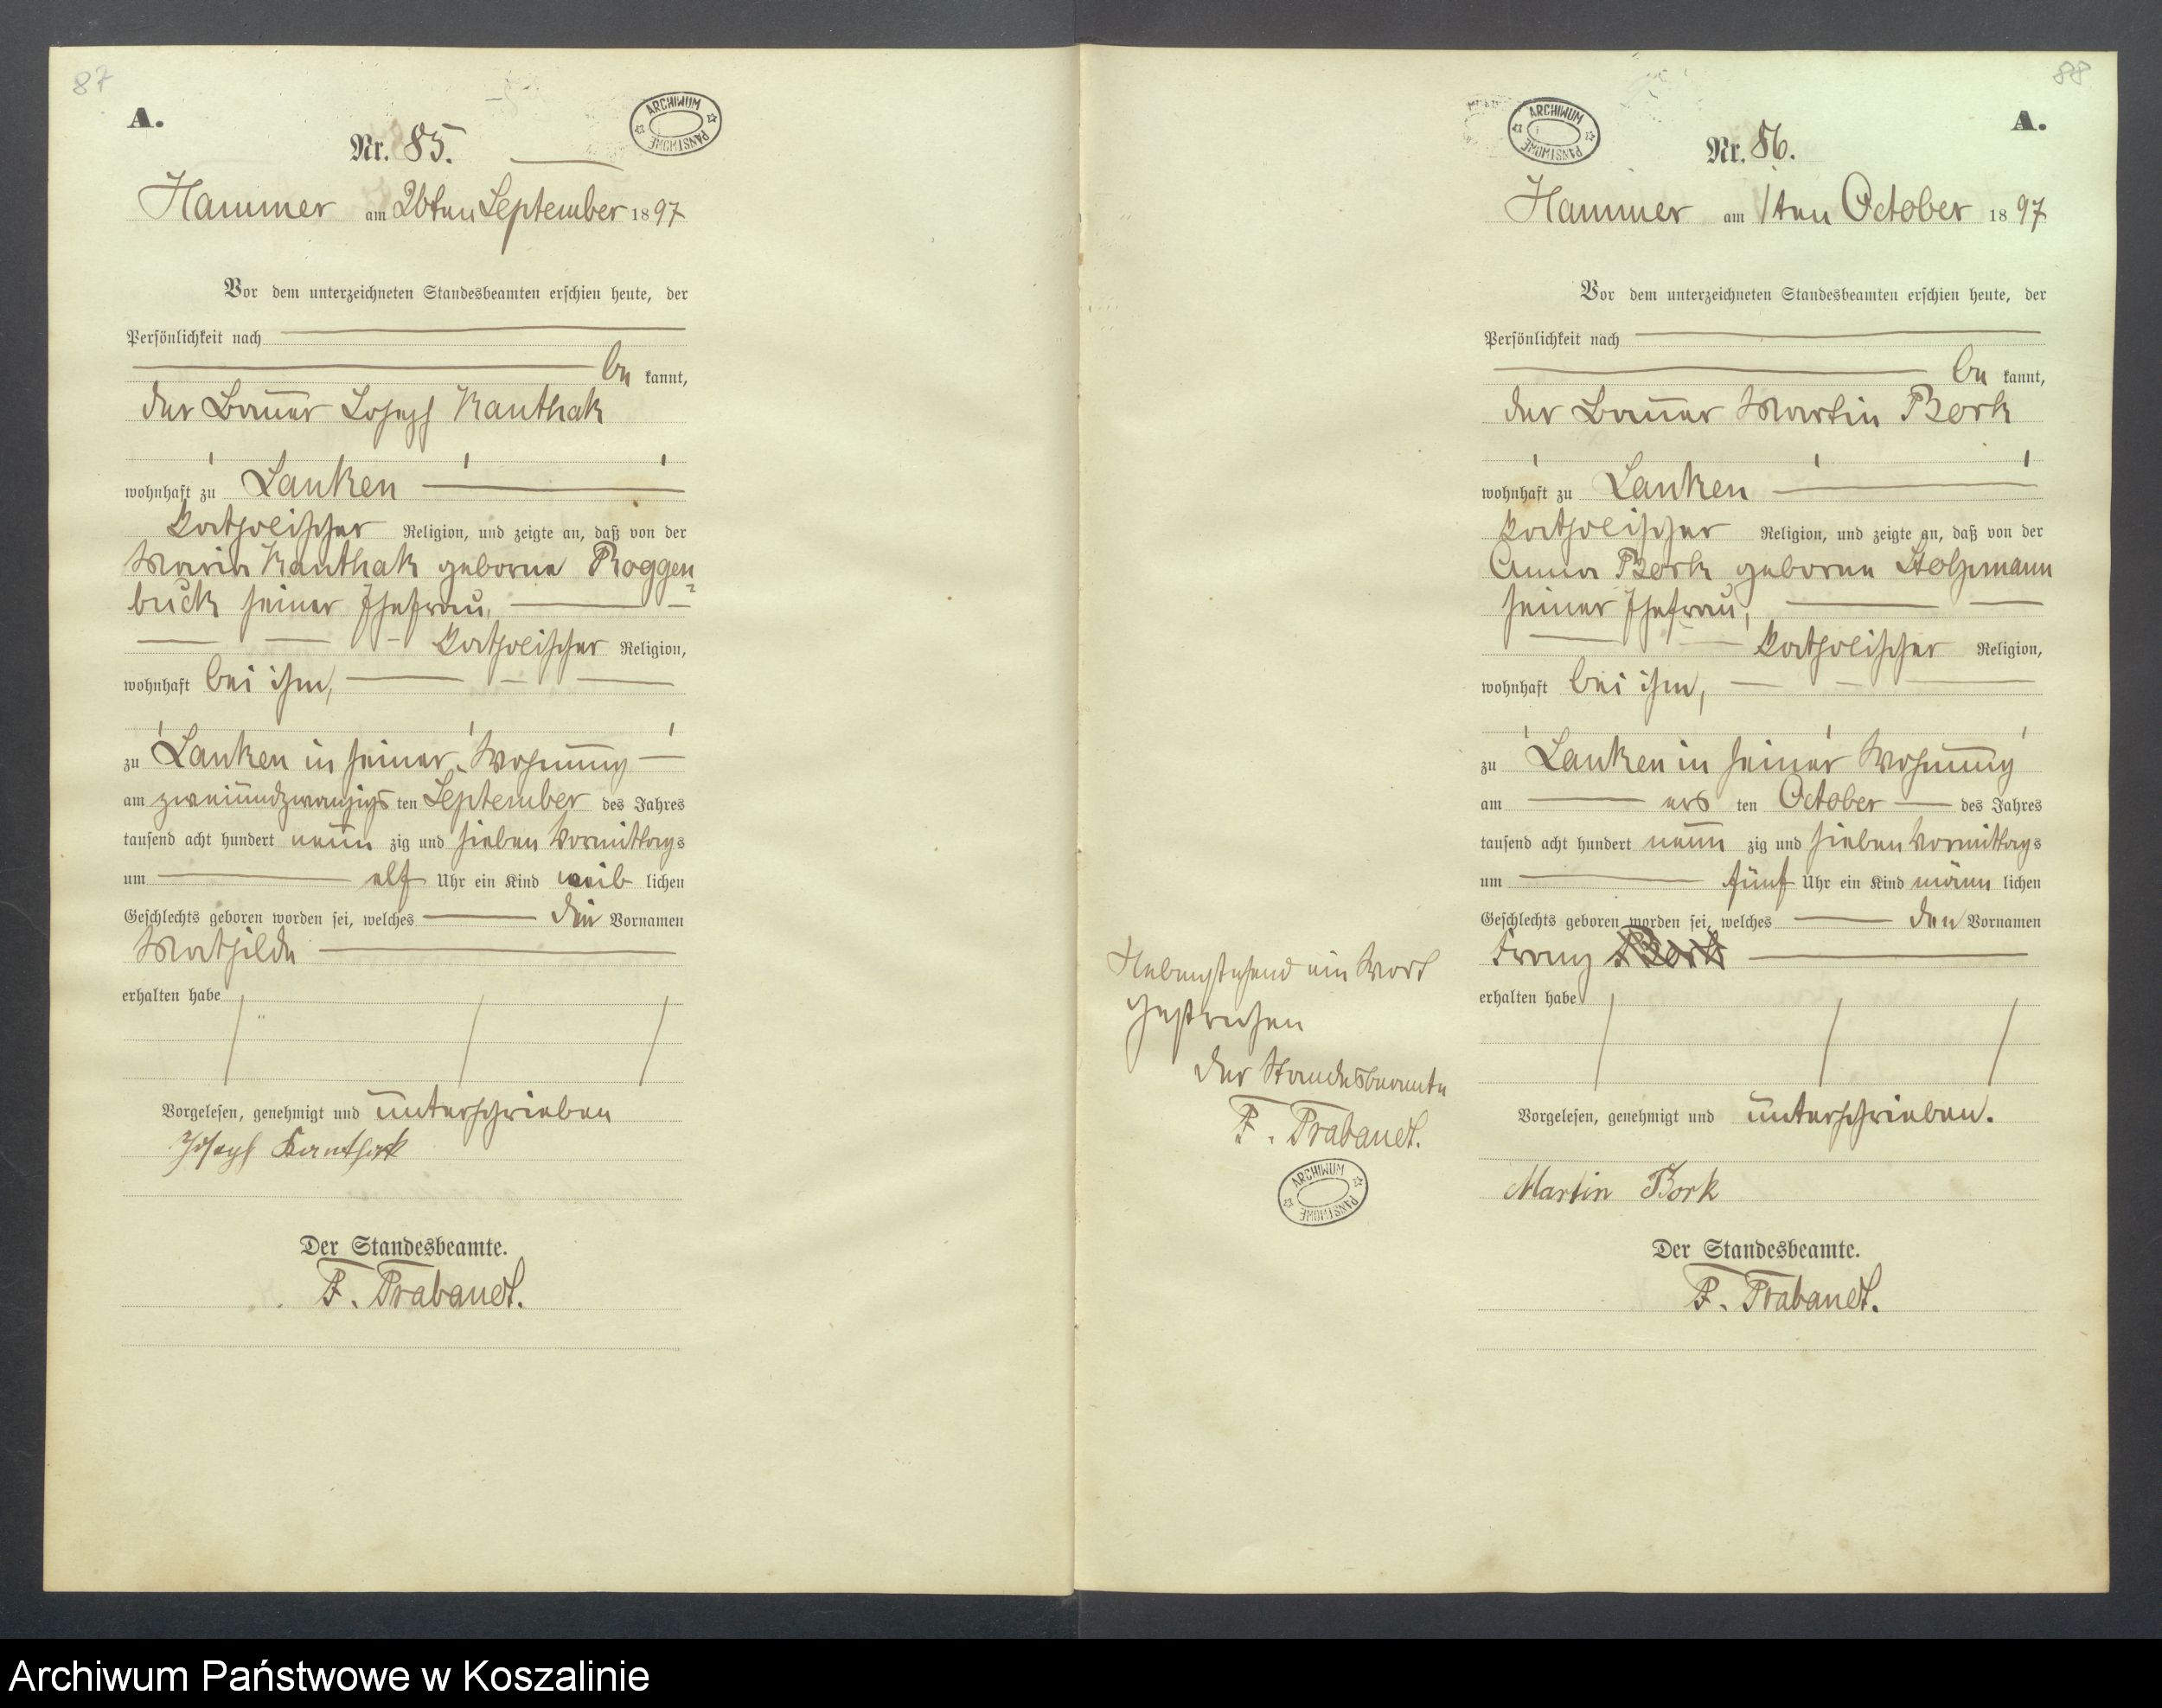 87
A.
Nr. 85.
ARCHIWUM PAŃSTWOWE
Hammer am 26ten September 1897
Vor dem unterzeichneten Standesbeamten erschien heute, der
Persönlichkeit nach
be kannt,
der Bauer Joseph Kanthak
wohnhaft zu Lanken
katholischer Religion, und zeigte an, daß von der
Maria Kanthak geborne Roggen=
buck seiner Ehefrau,
katholischer Religion,
wohnhaft bei ihm,
zu Lanken in seiner Wohnung
am zweiundzwanzigs ten September des Jahres
tausend acht hundert neun zig und sieben Vormittags
um elf Uhr ein Kind weib lichen
Geschlechts geboren worden sei, welches den Vornamen
Mathilde
erhalten habe
Vorgelesen, genehmigt und unterschrieben
Joseph Kanthak
Der Standesbeamte.
F. Trabandt.
88
A.
Nr. 86.
ARCHIWUM PAŃSTWOWE
Hammer am 1ten October 1897
Vor dem unterzeichneten Standesbeamten erschien heute, der
Persönlichkeit nach
be kannt,
der Bauer Martin Bork
wohnhaft zu Lanken
katholischer Religion, und zeigte an, daß von der
Anna Bork geborne Stolzmann
seiner Ehefrau,
katholischer Religion,
wohnhaft bei ihm,
zu Lanken in seiner Wohnung
am ers ten October des Jahres
tausend acht hundert neun zig und sieben Vormittags
um fünf Uhr ein Kind männ lichen
Geschlechts geboren worden sei, welches den Vornamen
Franz Bork
erhalten habe
Nebenstehend ein Wort
gestrichen
der Standesbeamte
F. Trabandt.
ARCHIWUM PAŃSTWOWE
Vorgelesen, genehmigt und unterschrieben.
Martin Bork
Der Standesbeamte.
F. Trabandt.
Archiwum Państwowe w Koszalinie